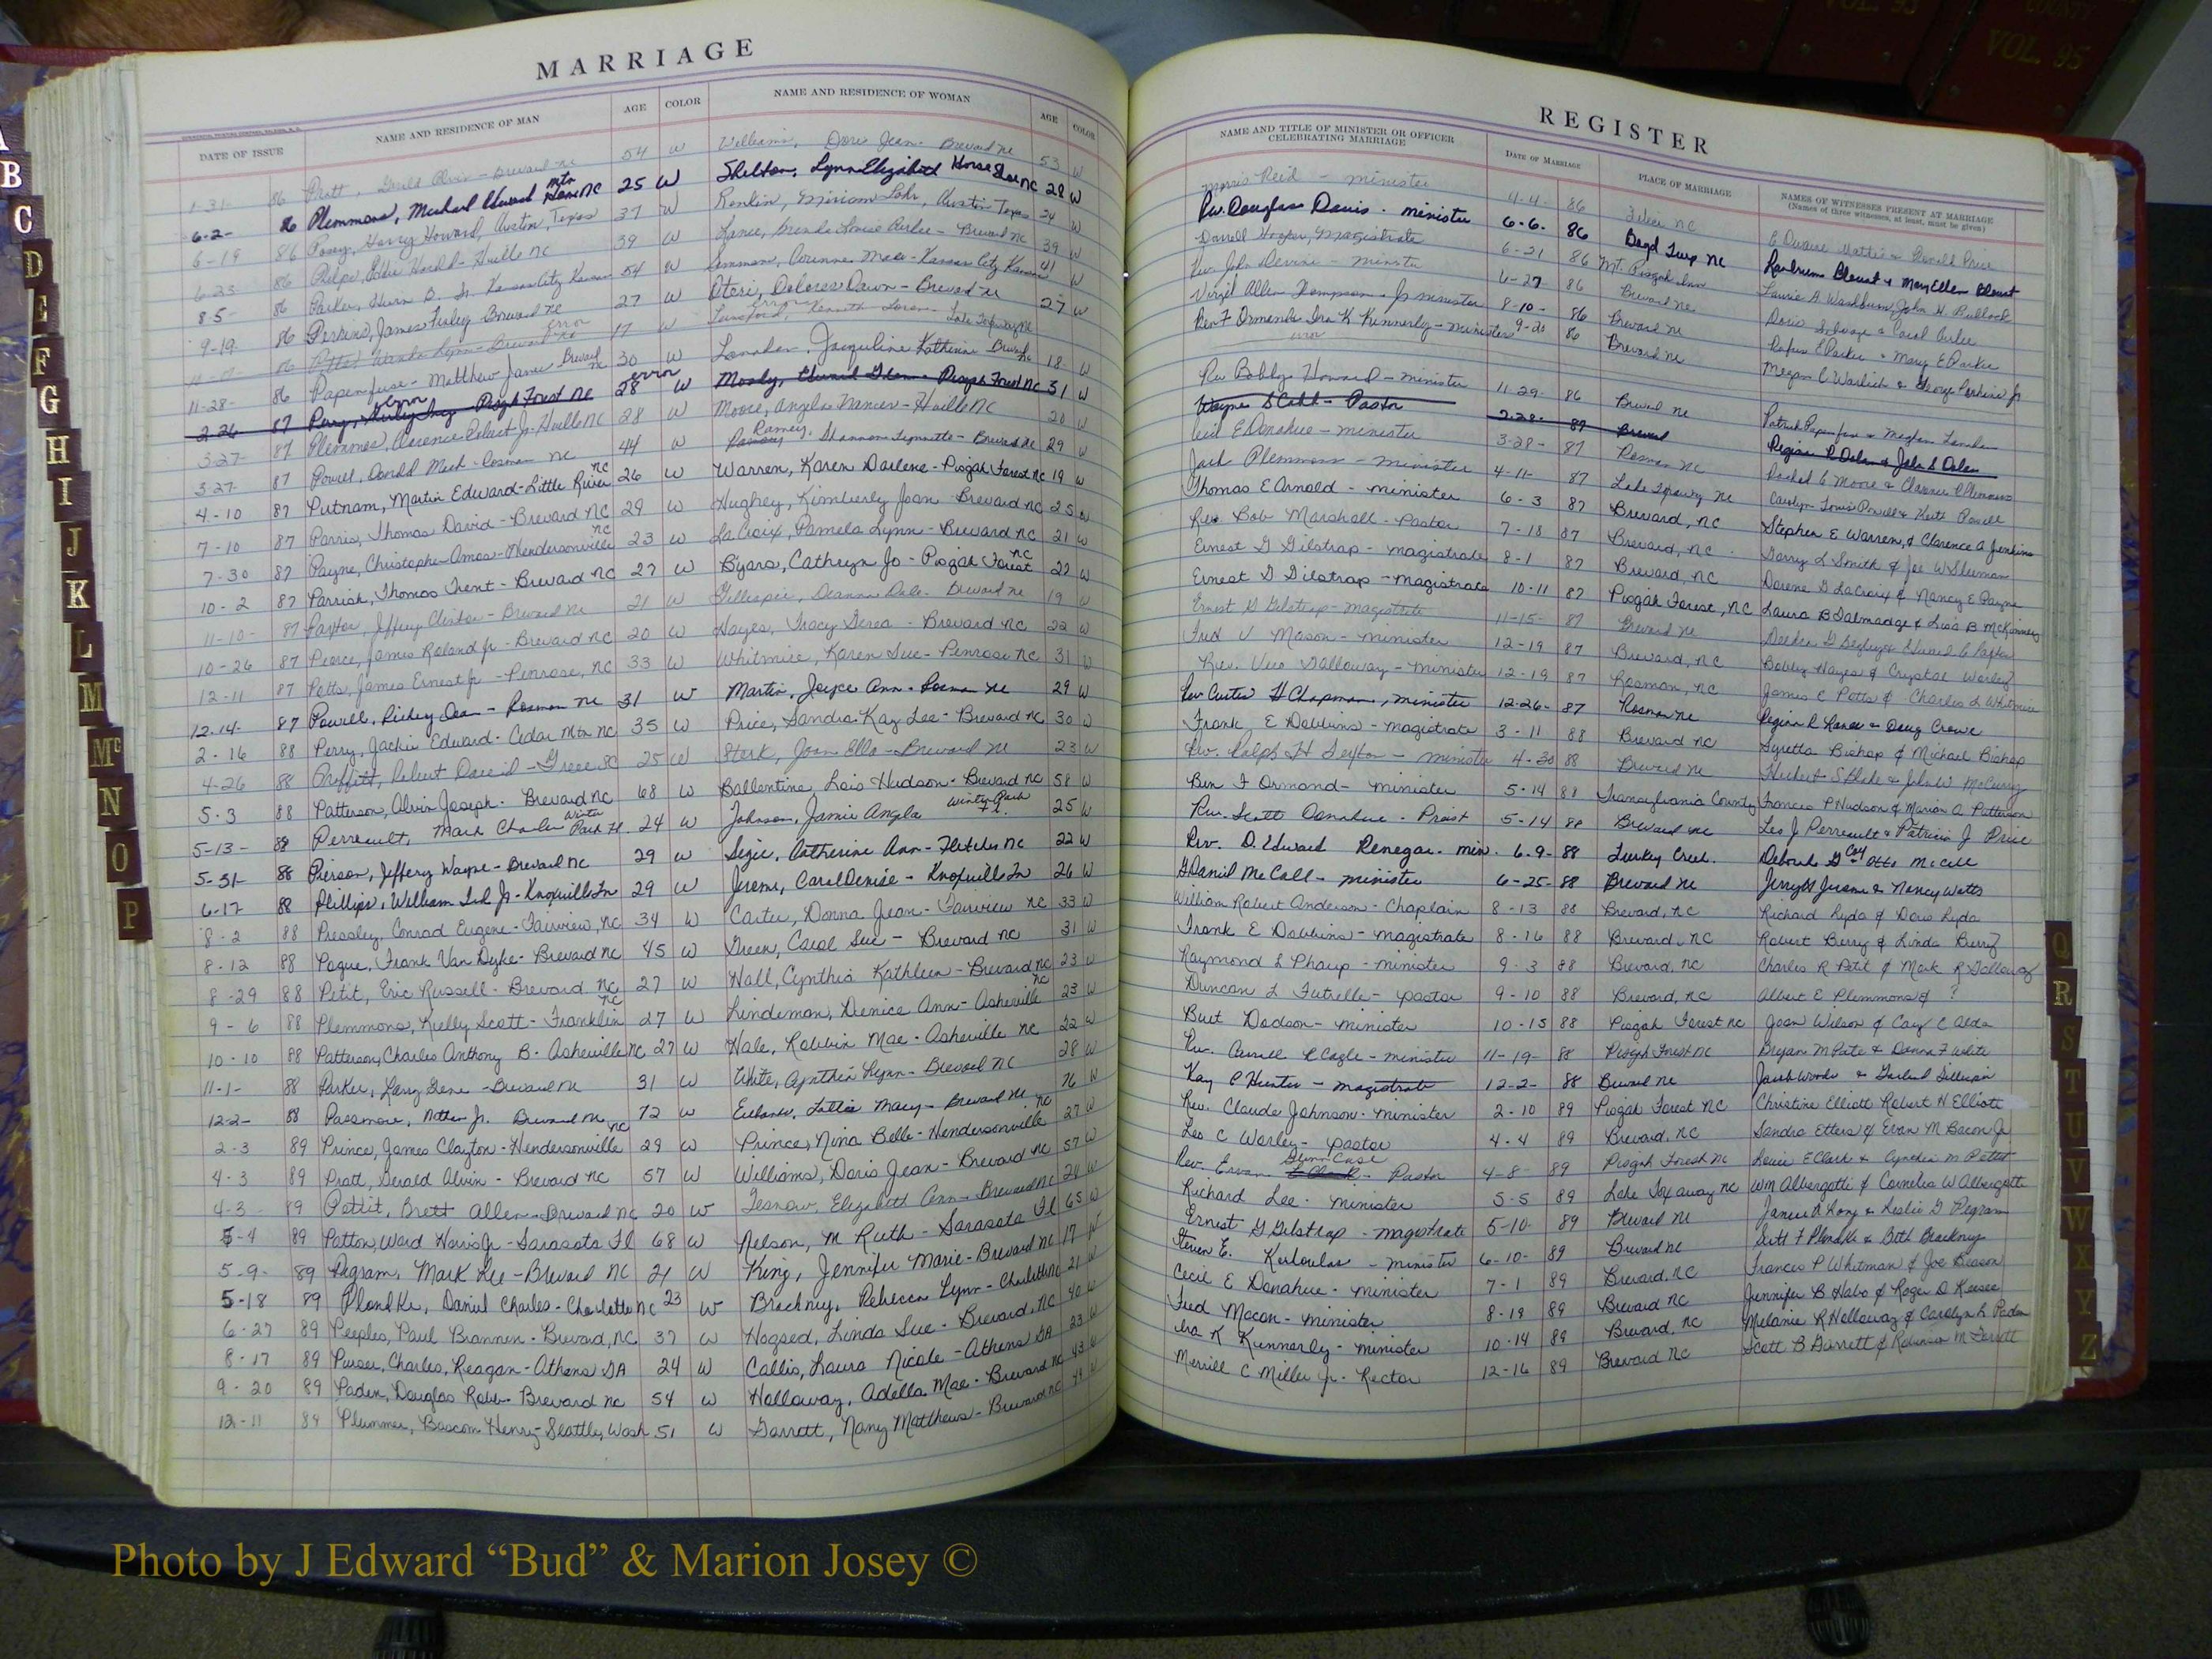 MARRIAGE
DATE OF ISSUE NAME AND RESIDENCE OF MAN AGE COLOR NAME AND RESIDENCE OF WOMAN AGE COLOR
1-31- 86 Pratt, Gerald Alvin - Brevard NC 54 W Williams, Doris Jean - Brevard NC 53 W
6-2- 86 Plemmons, Michael Edward mtn Home NC 25 W Shelton, Lynn Elizabeth Horse Shoe NC 28 W
6-19 86 Posey, Harry Howard, Austin, Texas 37 W Miriam Austin Texas 34 W
6-23 86 Phelps, Eddie Harold - H'ville NC 39 W Lance, Brenda Louise - Brevard NC 39 W
8-5- 86 Parker, Kansas City Kansas 54 W Ammons, Corinne Mae - Kansas City Kansas 41 W
9-19- 86 Perkins, James Finley Brevard NC 27 W Oteri, Dolores Dawn - Brevard NC 27 W
86 error Brevard NC 17 W error Lunsford, Kenneth Loren - Lake Toxaway NC
11-28- 86 Papenfuse - Matthew James Brevard NC 30 W Jacqueline Katherine Brevard NC 18 W
2-26 87 error Perry, Pisgah Forest NC error 28 W Moody, Edward Glenn - Pisgah Forest NC 31 W
3-27- 87 Plemmons, Clarence Robert Jr. H'ville NC 28 W Moore, Angela Frances - H'ville NC 20 W
3-27- 87 Powell, Donald Mack - Rosman NC 44 W Ramey, Shannon Lynnette - Brevard NC 29 W
4-10 87 Putnam, Martin Edward - Little River NC 26 W Warren, Karen Darlene - Pisgah Forest NC 19 W
7-10 87 Parris, Thomas David - Brevard NC 29 W Hughey, Kimberly Joan - Brevard NC 25 W
7-30 87 Payne, Christopher Amos - Hendersonville NC 23 W LaCroix, Pamela Lynn - Brevard NC 21 W
10-2 87 Parrish, Thomas Trent - Brevard NC 27 W Byars, Cathryn Jo - Pisgah Forest NC 22 W
11-10- 87 Payton, Jeffery Clinton - Brevard NC 21 W Gillespie, Deanna Dale - Brevard NC 19 W
10-26 87 Pierce, James Roland Jr - Brevard NC 20 W Hayes, Tracy Teresa - Brevard NC 22 W
12-11 87 Potts, James Ernest Jr - Penrose, NC 33 W Whitmire, Karen Sue - Penrose NC 31 W
12-14- 87 Powell, Rickey Dean - Rosman NC 31 W Martin, Joyce Ann - Rosman NC 29 W
2-16 88 Perry, Jackie Edward - Cedar Mtn NC 35 W Price, Sandra Kay Lee - Brevard NC 30 W
4-26 88 Proffitt, Robert David - Greer SC 25 W Stork, Joan Ella - Brevard NC 23 W
5-3 88 Patterson, Alvin Joseph - Brevard NC 68 W Ballentine, Lois Hudson - Brevard NC 58 W
5-13- 88 Perreault, Mark Charles Winter Park Fl. 24 W Johnson, Jamie Angela Winter Park Fl. 25 W
5-31- 88 Pierson, Jeffery Wayne - Brevard NC 29 W Catherine Ann - Fletcher NC 22 W
6-17 88 Phillips, William Jr - Knoxville Tn 29 W Jerome, Carol Denise - Knoxville Tn 26 W
8-2 88 Pressley, Conrad Eugene - Fairview, NC 34 W Carter, Donna Jean - Fairview NC 33 W
8-12 88 Pogue, Frank Van Dyke - Brevard NC 45 W Green, Carol Sue - Brevard NC 31 W
8-29 88 Petit, Eric Russell - Brevard NC 27 W Hall, Cynthia Kathleen - Brevard NC 23 W
9-6 88 Plemmons, Kelly Scott - Franklin NC 27 W Lindeman, Denice Ann - Asheville NC 23 W
10-10 88 Patterson, Charles Anthony B - Asheville NC 27 W Hale, Robbin Mae - Asheville NC 22 W
11-1- 88 Parker, Larry Gene - Brevard NC 31 W White, Cynthia Lynn - Brevard NC 28 W
12-2- 88 Passmore, Jr. Brevard NC 72 W Lottie Macy - Brevard NC 76 W
2-3 89 Prince, James Clayton - Hendersonville NC 29 W Prince, Nina Belle - Hendersonville NC 27 W
4-3 89 Pratt, Gerald Alvin - Brevard NC 57 W Williams, Doris Jean - Brevard NC 57 W
4-3- 89 Pettit, Brett Allen - Brevard NC 20 W Elizabeth Ann - Brevard NC 24 W
5-4 89 Patton, Ward Jr - Sarasota Fl 68 W Nelson, M Ruth - Sarasota Fl 65 W
5-9- 89 Pegram, Mark Lee - Brevard NC 21 W King, Jennifer Marie - Brevard NC 17 W
5-18 89 Plondke, Daniel Charles - Charlotte NC 23 W Brackney, Rebecca Lynn - Charlotte NC 21 W
6-27 89 Peeples, Paul Brannen - Brevard, NC 37 W Hogsed, Linda Sue - Brevard, NC 40 W
8-17 89 Purser, Charles, Reagan - Athens GA 24 W Callis, Laura Nicole - Athens GA 23 W
9-20 89 Paden, Douglas Robb - Brevard NC 54 W Holloway, Adella Mae - Brevard NC 43 W
12-11 89 Plummer, Bascom Henry - Seattle, Wash 51 W Garrett, Nancy Matthews - Brevard NC 49 W
REGISTER
NAME AND TITLE OF MINISTER OR OFFICER CELEBRATING MARRIAGE DATE OF MARRIAGE PLACE OF MARRIAGE NAMES OF WITNESSES PRESENT AT MARRIAGE
(Names of three witnesses, at least, must be given)
Morris Reid - minister 4-4- 86 NC
Rev. Douglass Davis - minister 6-6- 86 Boyd Twsp NC Blount & Mary Ellen Blount
Darrell Hooper, Magistrate 6-21 86 Mt. Pisgah Inn Laurie A Washburn, John H. Bullock
Rev. John Devine - minister 6-27- 86 Brevard NC
Virgil Allen Thompson - Jr minister 8-10- 86 Brevard NC Rufus E Parker & Mary E Parker
Rev F Ormond & Ira K Kennerly - minister 9-20 86 Brevard NC Megan C Warlick & George Perkins Jr
error
Rev Bobby Howard - minister 11-29- 86 Brevard NC Patrick Papenfuse &
Wayne S Cobb - Pastor 2-28- 87 Brevard
Cecil E Donahue - minister 3-28- 87 Rosman NC Rachel C Moore & Clarence R Plemmons
Jack Plemmons - minister 4-11- 87 Lake Toxaway NC Carolyn Powell & Keith Powell
Thomas E Arnold - minister 6-3 87 Brevard, NC Stephen E Warren, & Clarence A Jenkins
Rev. Bob Marshall - Pastor 7-18 87 Brevard, NC Garry L Smith & Joe W Sherman
Ernest G Gilstrap - magistrate 8-1 87 Brevard, NC Darene G LaCroix & Nancy E Payne
Ernest G Gilstrap - magistrate 10-11 87 Pisgah Forest, NC Laura B Talmadge & Lisa B McKinney
Ernest G Gilstrap - magistrate 11-15- 87 Brevard NC
Fred V Mason - minister 12-19 87 Brevard, NC Bobby Hayes & Crystal Worley
Rev. Vero Galloway - minister 12-19 87 Rosman, NC James C Potts & Charles L Whitmire
Rev Curtis H Chapman, minister 12-26- 87 Rosman NC Regina R & Doug Crowe
Frank E Dobbins - magistrate 3-11 88 Brevard NC Syretta Bishop & Michael Bishop
Rev. Ralph H Sexton - minister 4-30 88 Brevard NC Herbert S Blake & John W McCurry
Ben F Ormond - minister 5-14 88 Transylvania County Frances P Hudson & Marion A Patterson
Rev. Scott Donahue - Priest 5-14 88 Brevard NC Leo J Perreault & Patricia J Price
Rev. D. Edward Renegar - min. 6-9- 88 Turkey Creek. Deborah G Coy & Otto McCall
G Daniel McCall - minister 6-25- 88 Brevard NC Jerome & Nancy Watts
William Robert Anderson - Chaplain 8-13 88 Brevard, NC Richard Lyda & Doris Lyda
Frank E Dobbins - magistrate 8-16 88 Brevard, NC Robert Berry & Linda Berry
Raymond L Phaup - minister 9-3 88 Brevard, NC Charles R Petit & Mark R Galloway
Duncan L Futrelle - pastor 9-10 88 Brevard, NC Albert E Plemmons & ?
Burt Dodson - minister 10-15 88 Pisgah Forest NC Joan Wilson & Coy C
Rev. Carroll R Cagle - minister 11-19- 88 Pisgah Forest NC Bryan M Pate & Donna F White
Kay P Hunter - magistrate 12-2- 88 Brevard NC Jacob Woods & Garland Gillespie
Rev. Claude Johnson - minister 2-10 89 Pisgah Forest NC Christine Elliott Robert H Elliott
Leo C Worley - pastor 4-4 89 Brevard, NC Sandra Etters & Evan M Bacon Jr
Rev. Glenn Case - Pastor 4-8- 89 Pisgah Forest NC E Clark & Cynthia M Pettit
Richard Lee - minister 5-5 89 Lake Toxaway NC Wm Albergotti & Cornelia W Albergotti
Ernest G Gilstrap - magistrate 5-10- 89 Brevard NC James A Long & Leslie G Pegram
Steven E. - minister 6-10- 89 Brevard NC Scott F Plondke & Beth Brackney
Cecil E Donahue - minister 7-1 89 Brevard, NC Frances P Whitman & Joe Beason
Fred Mason - minister 8-19 89 Brevard NC Jennifer B Nabo & Roger D Keesee
Ira K Kennerly - minister 10-14 89 Brevard, NC Melanie R Holloway & Carolyn L Paden
Merrill C Miller Jr. - Rector 12-16 89 Brevard NC Scott B Garrett & Robinson M Garrett
B
C
D
E
F
G
H
I
J
K
L
M
Mc
N
O
P
Q
R
S
T
U
V
W
X
Y
Z
COUNTY
VOL. 95
Photo by J Edward “Bud” & Marion Josey ©